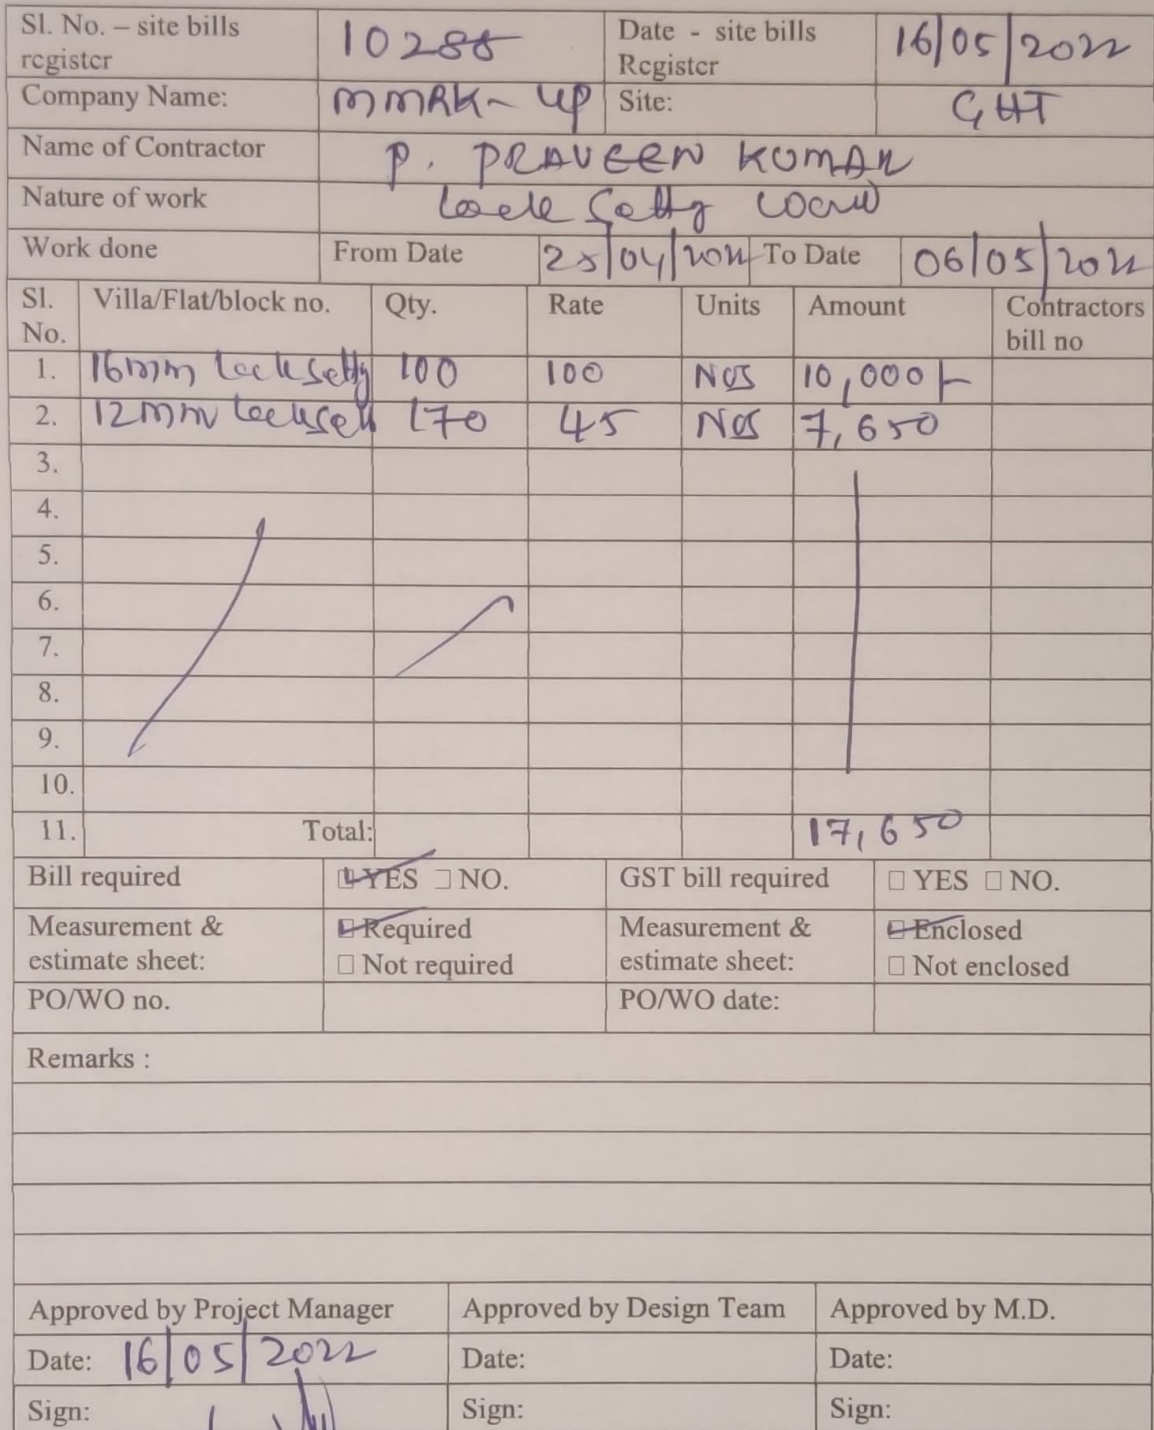 Sl. No. – site bills register 10288 Date - site bills Register 16/05/2022
Company Name: MMRK- Site: GHT
Name of Contractor P. PRAVEEN KUMAR
Nature of work
Work done From Date To Date 06/05/2022
Sl. No. Villa/Flat/block no. Qty. Rate Units Amount Contractors bill no
1. 16mm 100 100 Nos 10,000/-
2. 12mm 170 45 Nos 7,650
3.
4.
5.
6.
7.
8.
9.
10.
11. Total: 17,650
Bill required ☑ YES □ NO. GST bill required □ YES □ NO.
Measurement & estimate sheet: ☑ Required Measurement & estimate sheet: ☑ Enclosed
□ Not required □ Not enclosed
PO/WO no. PO/WO date:
Remarks :
Approved by Project Manager Approved by Design Team Approved by M.D.
Date: 16/05/2022 Date: Date:
Sign: Sign: Sign: